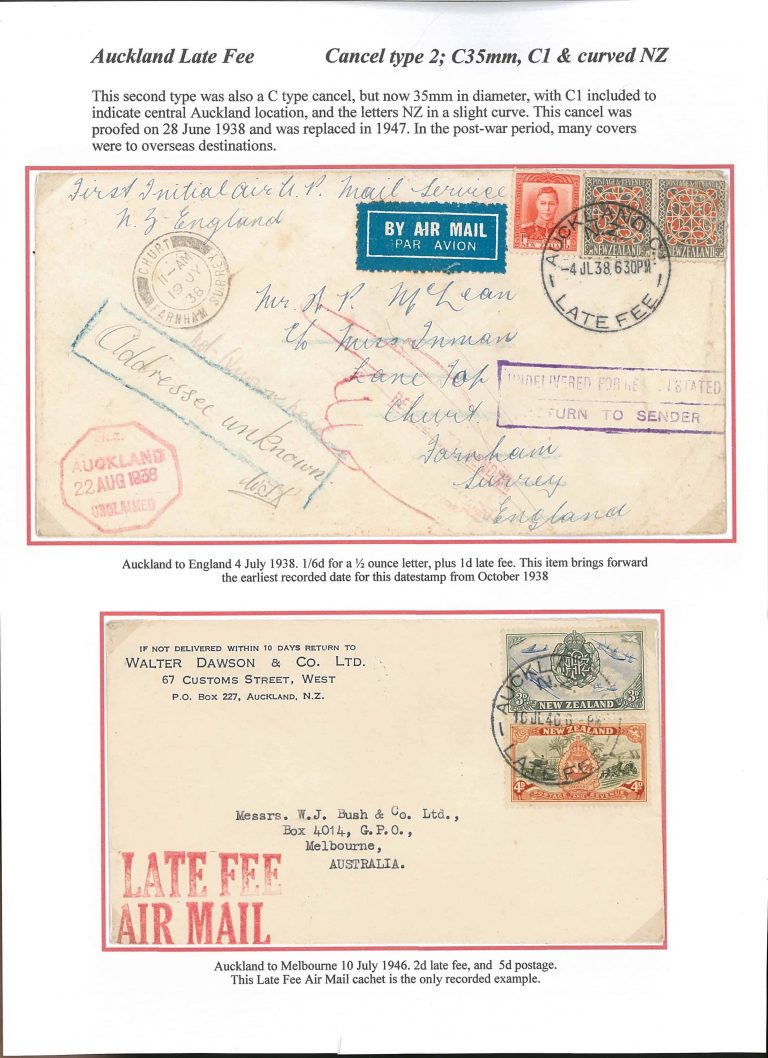 Auckland Late Fee Cancel type 2; C35mm, C1 & curved NZ
This second type was also a C type cancel, but now 35mm in diameter, with C1 included to
indicate central Auckland location, and the letters NZ in a slight curve. This cancel was
proofed on 28 June 1938 and was replaced in 1947. In the post-war period, many covers
were to overseas destinations.
First Initial Air U.P. Mail Service
N.Z-England
BY AIR MAIL
PAR AVION
POSTAGE & REVENUE
NEW ZEALAND
POSTAGE & REVENUE
NEW ZEALAND
AUCKLAND C1
N.Z
-4 JL 38 630PM
LATE FEE
CHURT
11-AM
19 JY
38
FARNHAM SURREY
Mr. A. P. McLean
c/o Miss Inman
Lane Top
Churt
Farnham
Surrey
England
Addressee unknown
UNDELIVERED FOR REASON STATED
RETURN TO SENDER
N.Z.
AUCKLAND
22 AUG 1938
UNCLAIMED
Auckland to England 4 July 1938. 1/6d for a ½ ounce letter, plus 1d late fee. This item brings forward
the earliest recorded date for this datestamp from October 1938
IF NOT DELIVERED WITHIN 10 DAYS RETURN TO
WALTER DAWSON & CO. LTD.
67 CUSTOMS STREET, WEST
P.O. BOX 227, AUCKLAND, N.Z.
3D NEW ZEALAND 3D
AUCKL
N.Z
10 JL 46 6 - PM
LATE FEE
NEW ZEALAND
4D POSTAGE REVENUE 4D
Messrs. W.J. Bush & Co. Ltd.,
Box 4014, G.P.O.,
Melbourne,
AUSTRALIA.
LATE FEE
AIR MAIL
Auckland to Melbourne 10 July 1946. 2d late fee, and 5d postage.
This Late Fee Air Mail cachet is the only recorded example.